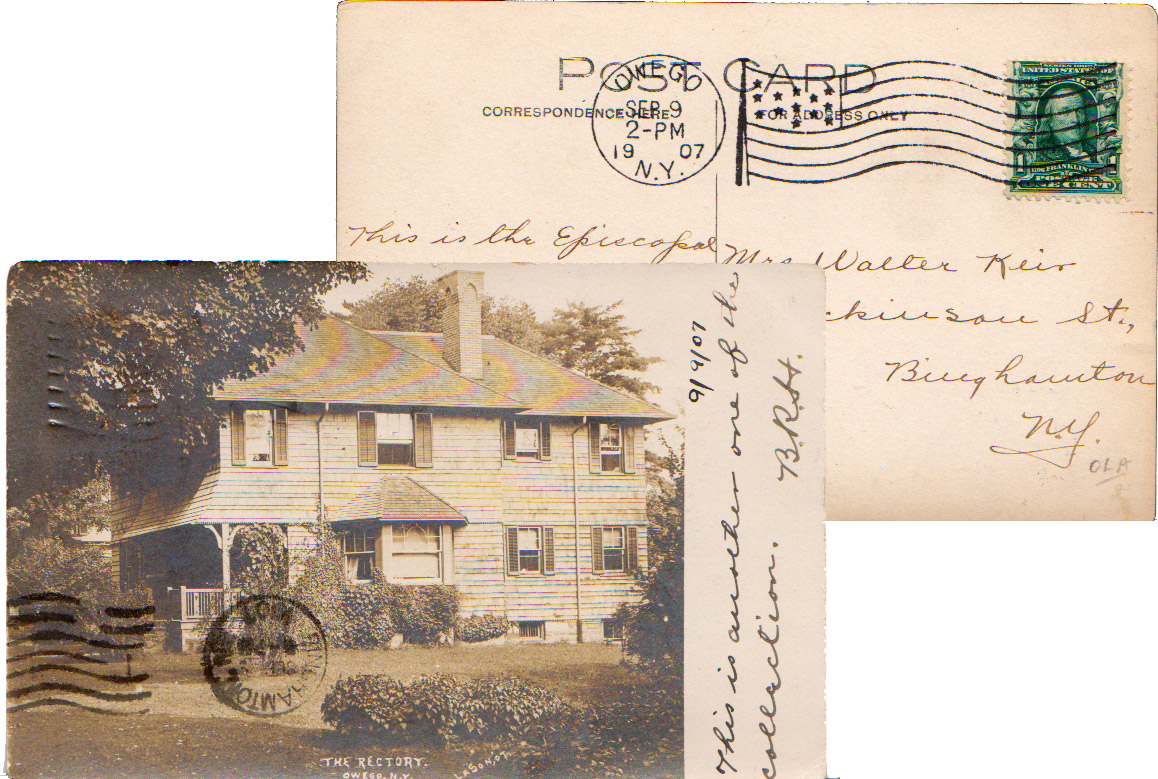 POST CARD
CORRESPONDENCE HERE
FOR ADDRESS ONLY
OWEGO
SEP 9
2-PM
1907
N.Y.
UNITED STATES
FRANKLIN
POSTAGE
1 ONE CENT
This is the Episcopal
Mrs Walter Keir
ckinson St.,
Binghamton
N.Y.
OLA
9/9/07
This is another one of the
collection. B.R.H.
THE RECTORY.
OWEGO, N.Y.